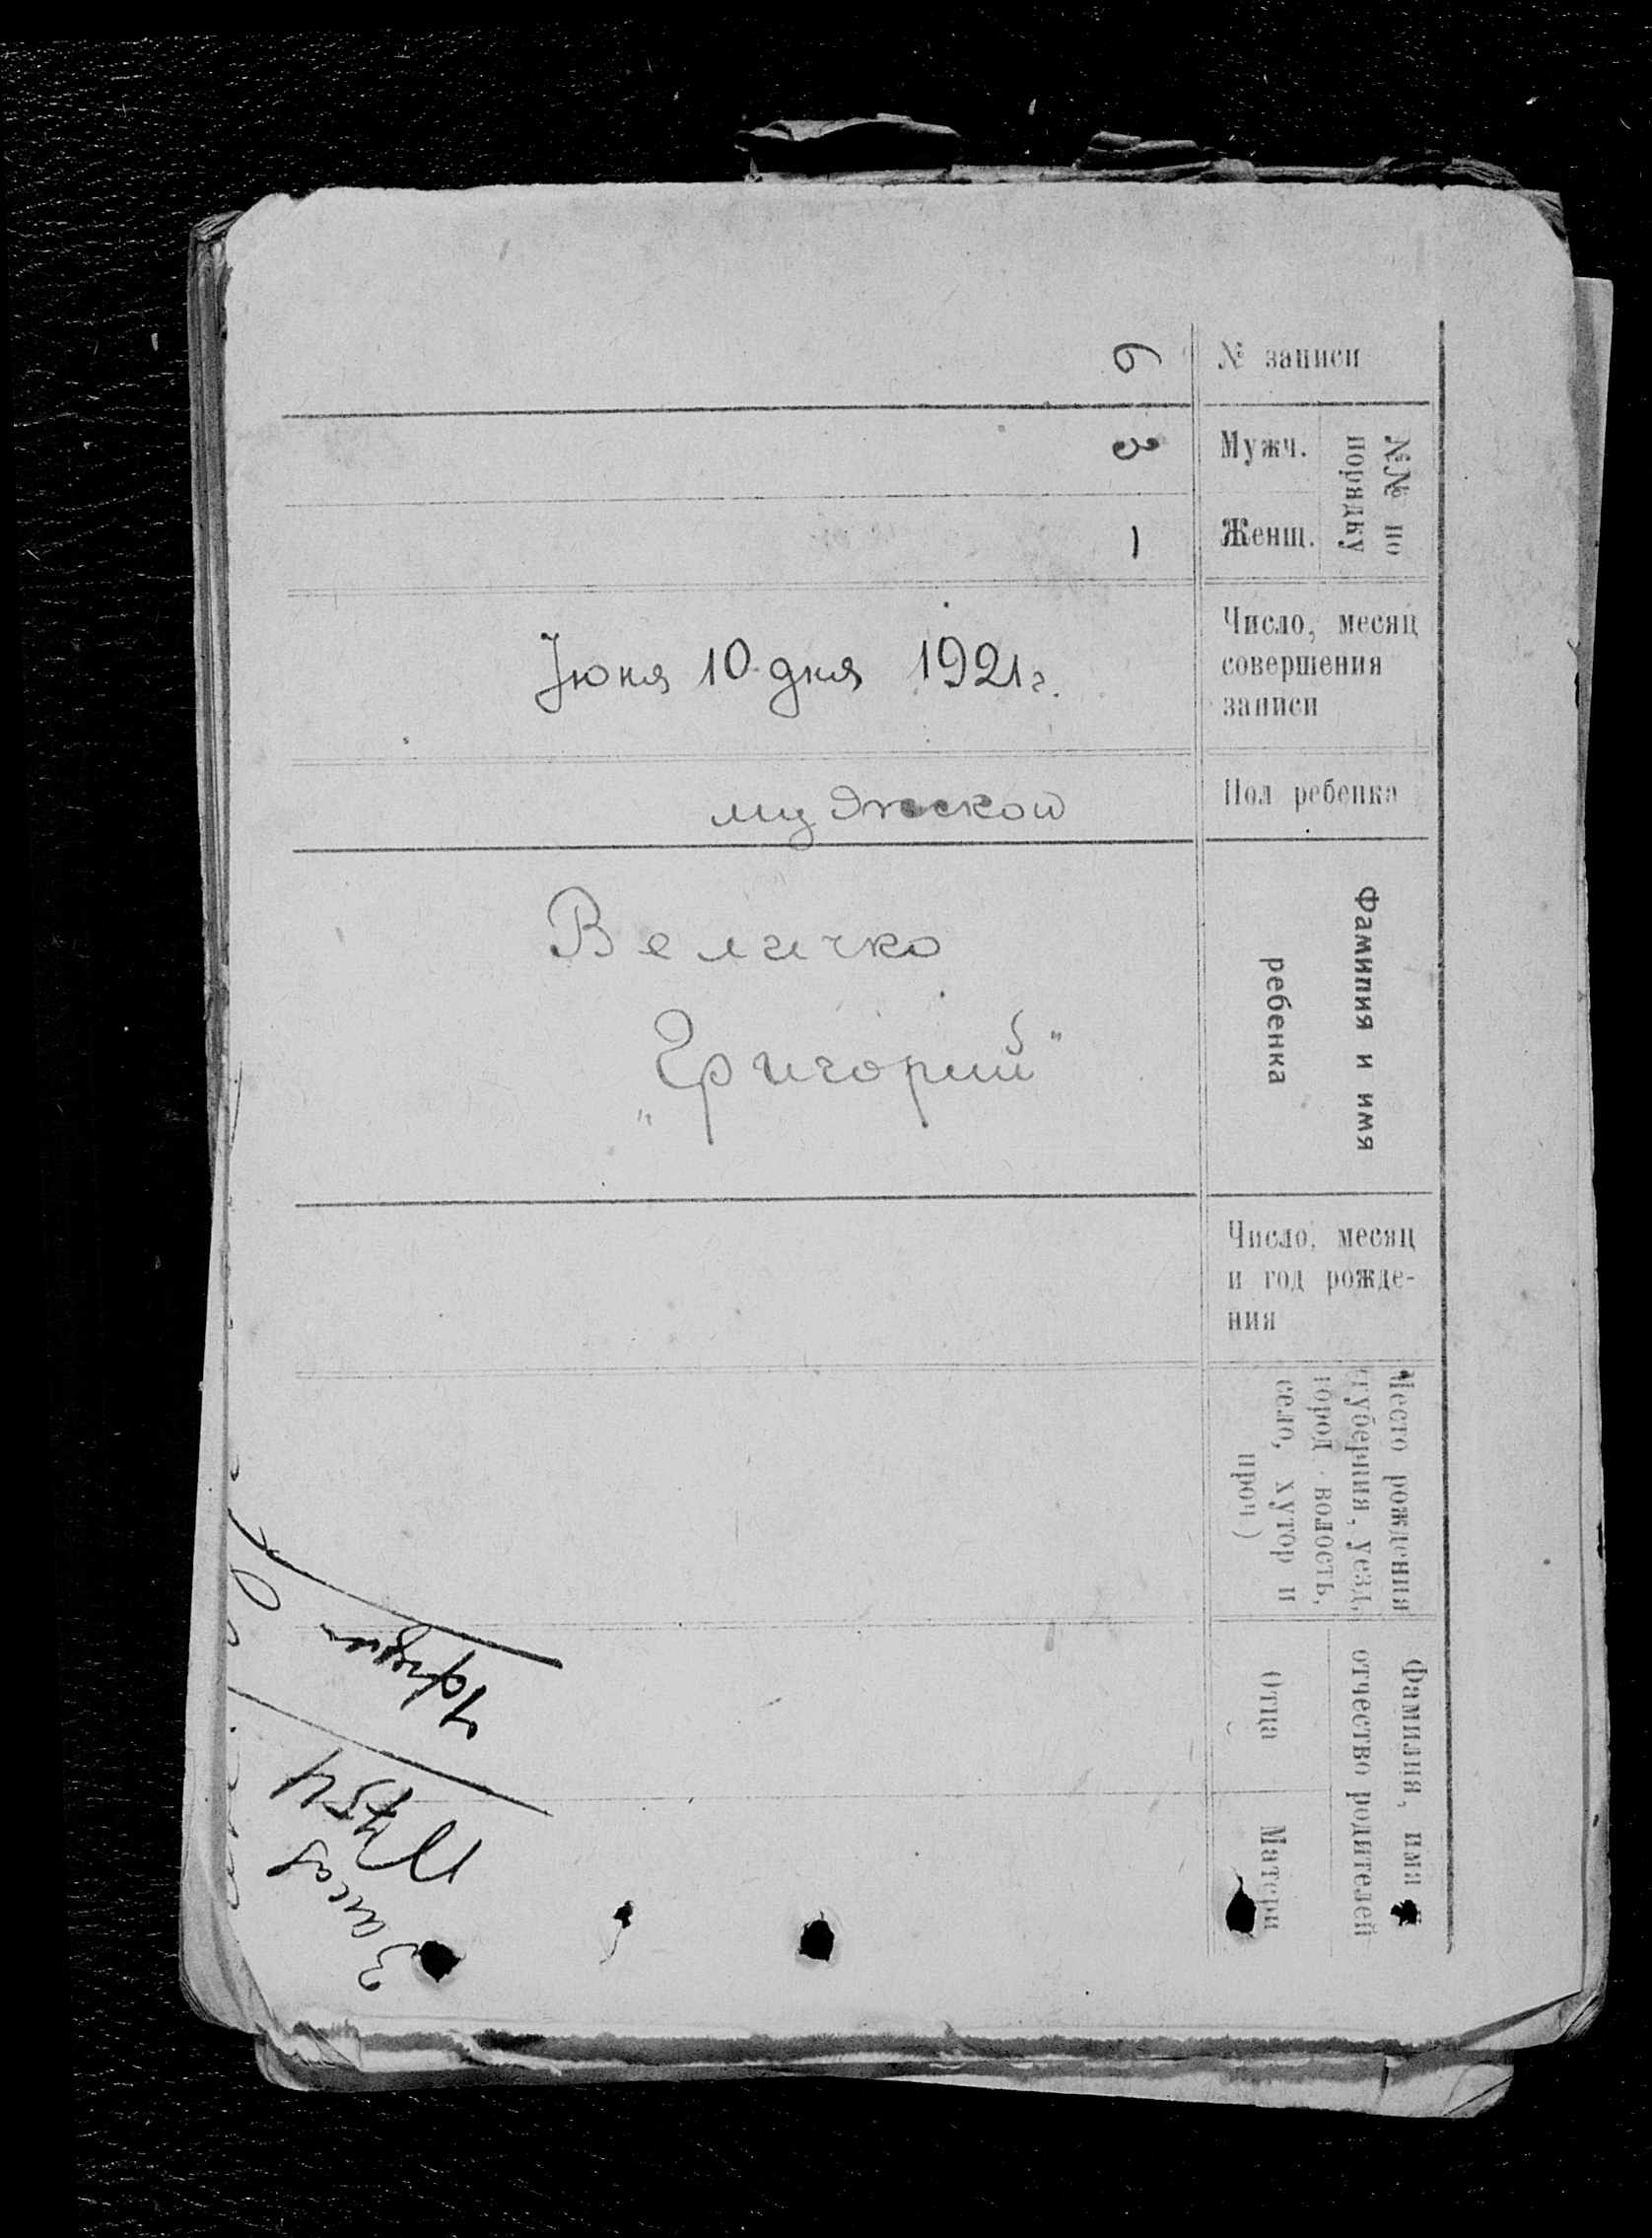 № записи
6
№№ по
порядку
Мужч.
3
Женщ.
1
Число, месяц
совершения
записи
Июня 10 дня 1921 г.
Пол ребенка
мужской
Фамилия и имя
ребенка
Величко
„Григорий"
Число, месяц
и год рожде-
ния
Место рождения
(губерния, уезд,
город волость,
село, хутор и
проч)
Фамилия, имя
отчество родителей
Отца
Матери